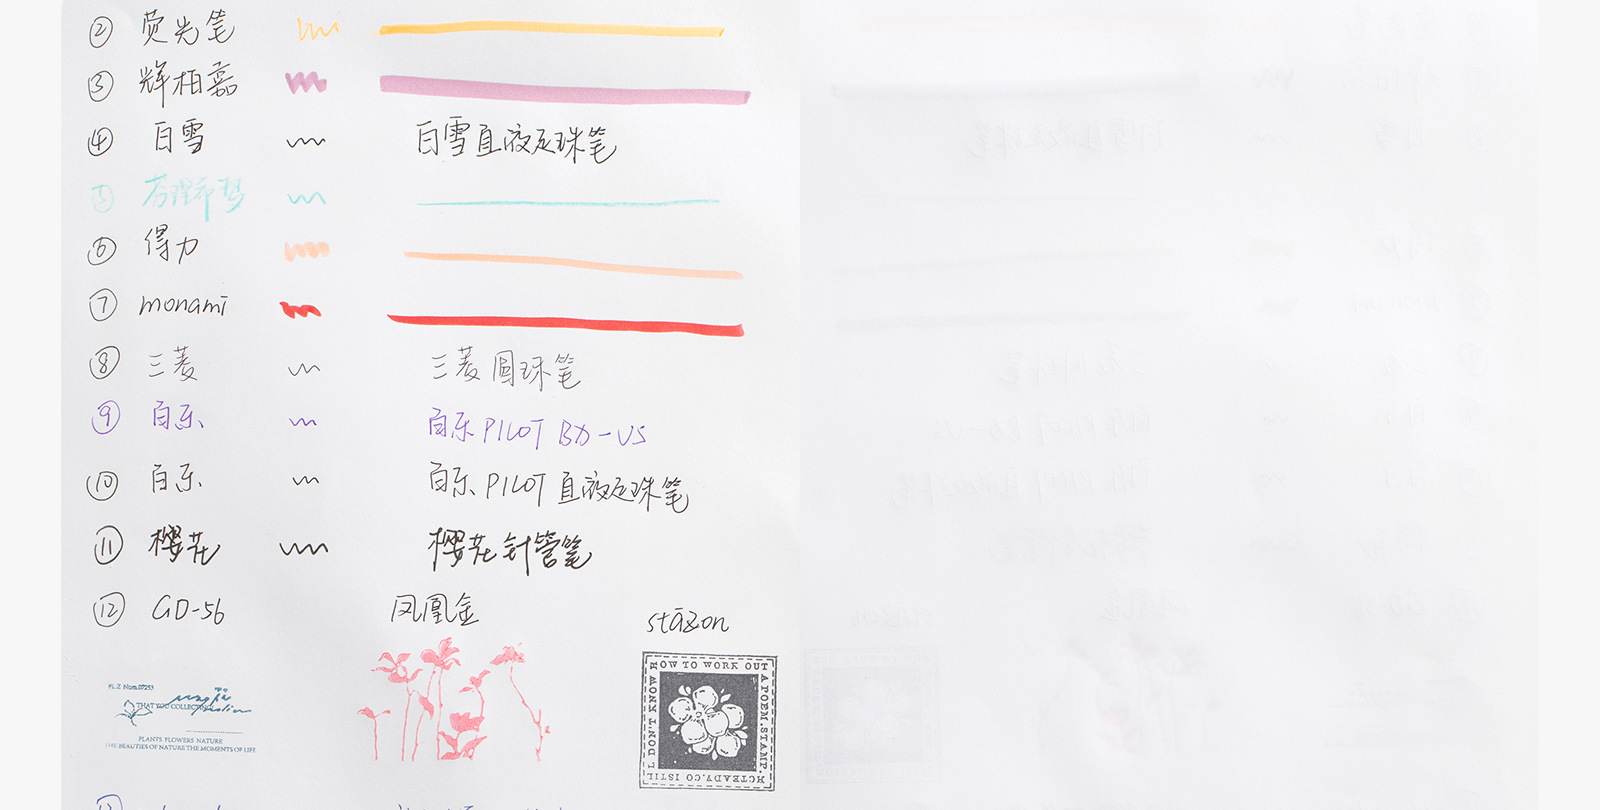 ② 荧光笔
③ 辉柏嘉
④ 白雪 白雪直液走珠笔
⑤
⑥ 得力
⑦ monami
⑧ 三菱 三菱圆珠笔
⑨ 百乐 百乐 PILOT BX-V5
⑩ 百乐 百乐 PILOT 直液走珠笔
⑪ 樱花 樱花针管笔
⑫ GD-56 凤凰金 stāzon
FL.Z Nom.07253
THAT YOU COLLECTING
PLANTS FLOWERS NATURE
THE BEAUTIES OF NATURE THE MOMENTS OF LIFE
HOW TO WORK OUT
A POEM.STAMP.
HCTEADY.CO ISTIL
L DON'T KNOW
⑬